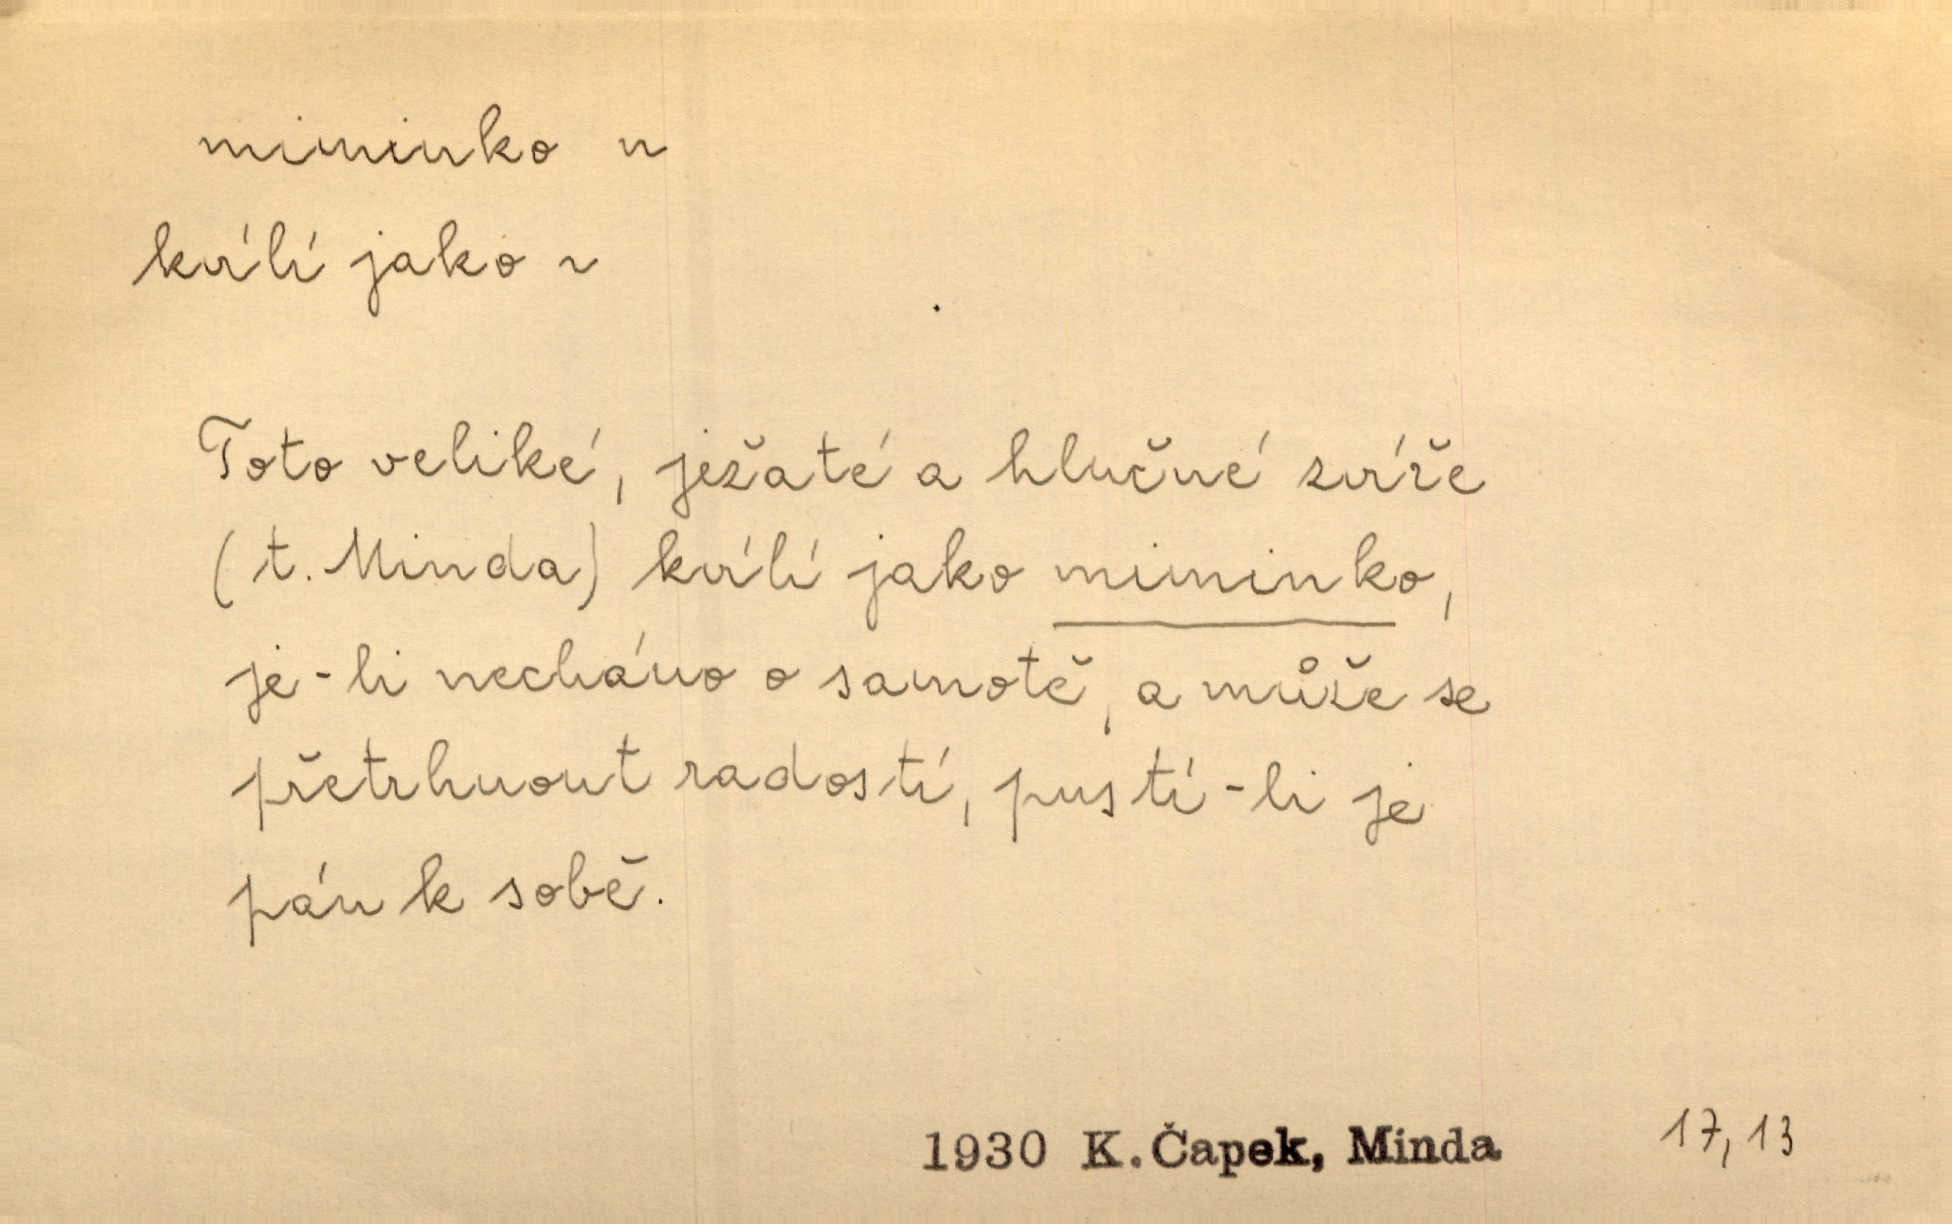 miminko n
kvílí jako ~
Toto veliké, ježaté a hlučné zvíře
(t. Minda) kvílí jako miminko,
je-li necháno o samotě, a může se
přetrhnout radostí, pustí-li je
pán k sobě.
1930 K. Čapek, Minda 17,13